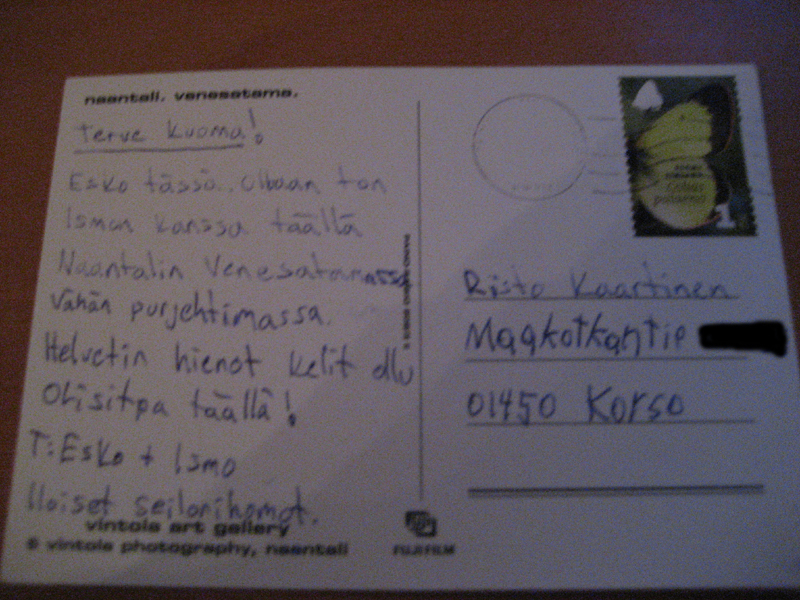 naantali. venesatama.
Terve Kuoma!
Esko tässä. Ollaan ton
Ismon kanssa täällä
Naantalin Venesatamassa
vähän purjehtimassa.
Helvetin hienot kelit
Olisitpa täällä!
T: Esko + Ismo
Iloiset seilorihomot.
vintola art gallery
© vintola photography, naantali
FUJIFILM
1
Risto Kaartinen
Maakotkantie
01450 Korso